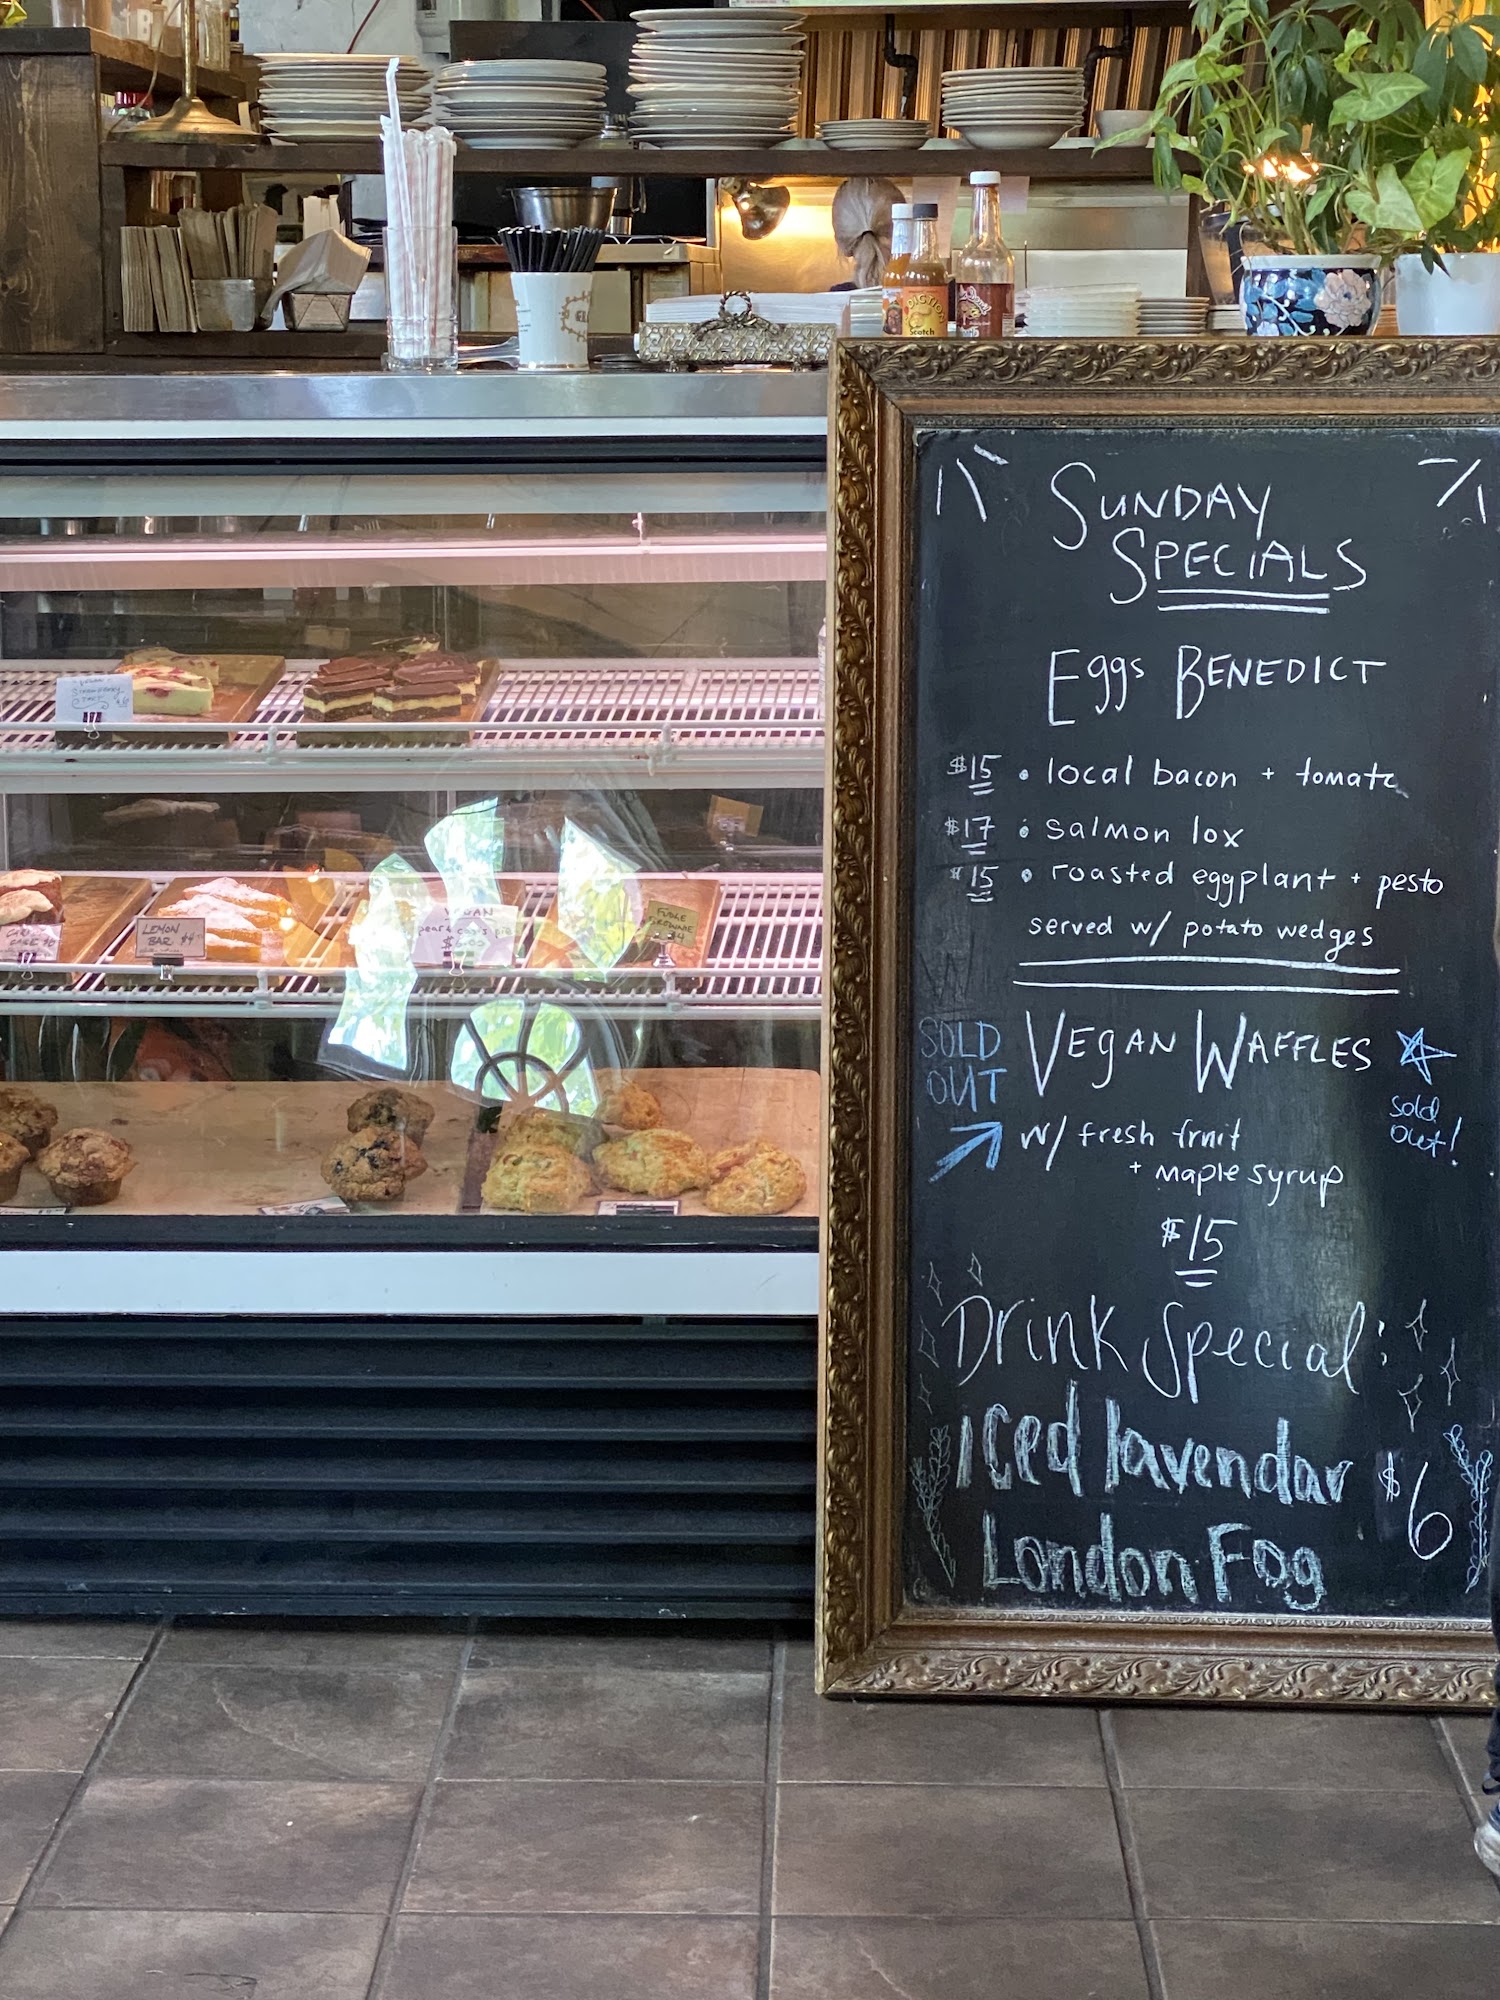 SUNDAY
SPECIALS
Eggs BENEDICT
$15 • local bacon + tomato
$17 • salmon lox
$15 • roasted eggplant + pesto
served w/ potato wedges
SOLD
OUT
VEgAN WAFFLES
sold
out!
w/ fresh fruit
+ maple syrup
$15
Drink Special:
iced lavendar
London Fog
$6
VEGAN
STRAWBERRY
LEMON
BAR $4
VEGAN
$6.00
FUDGE
BROWNIE
$4
Scotch